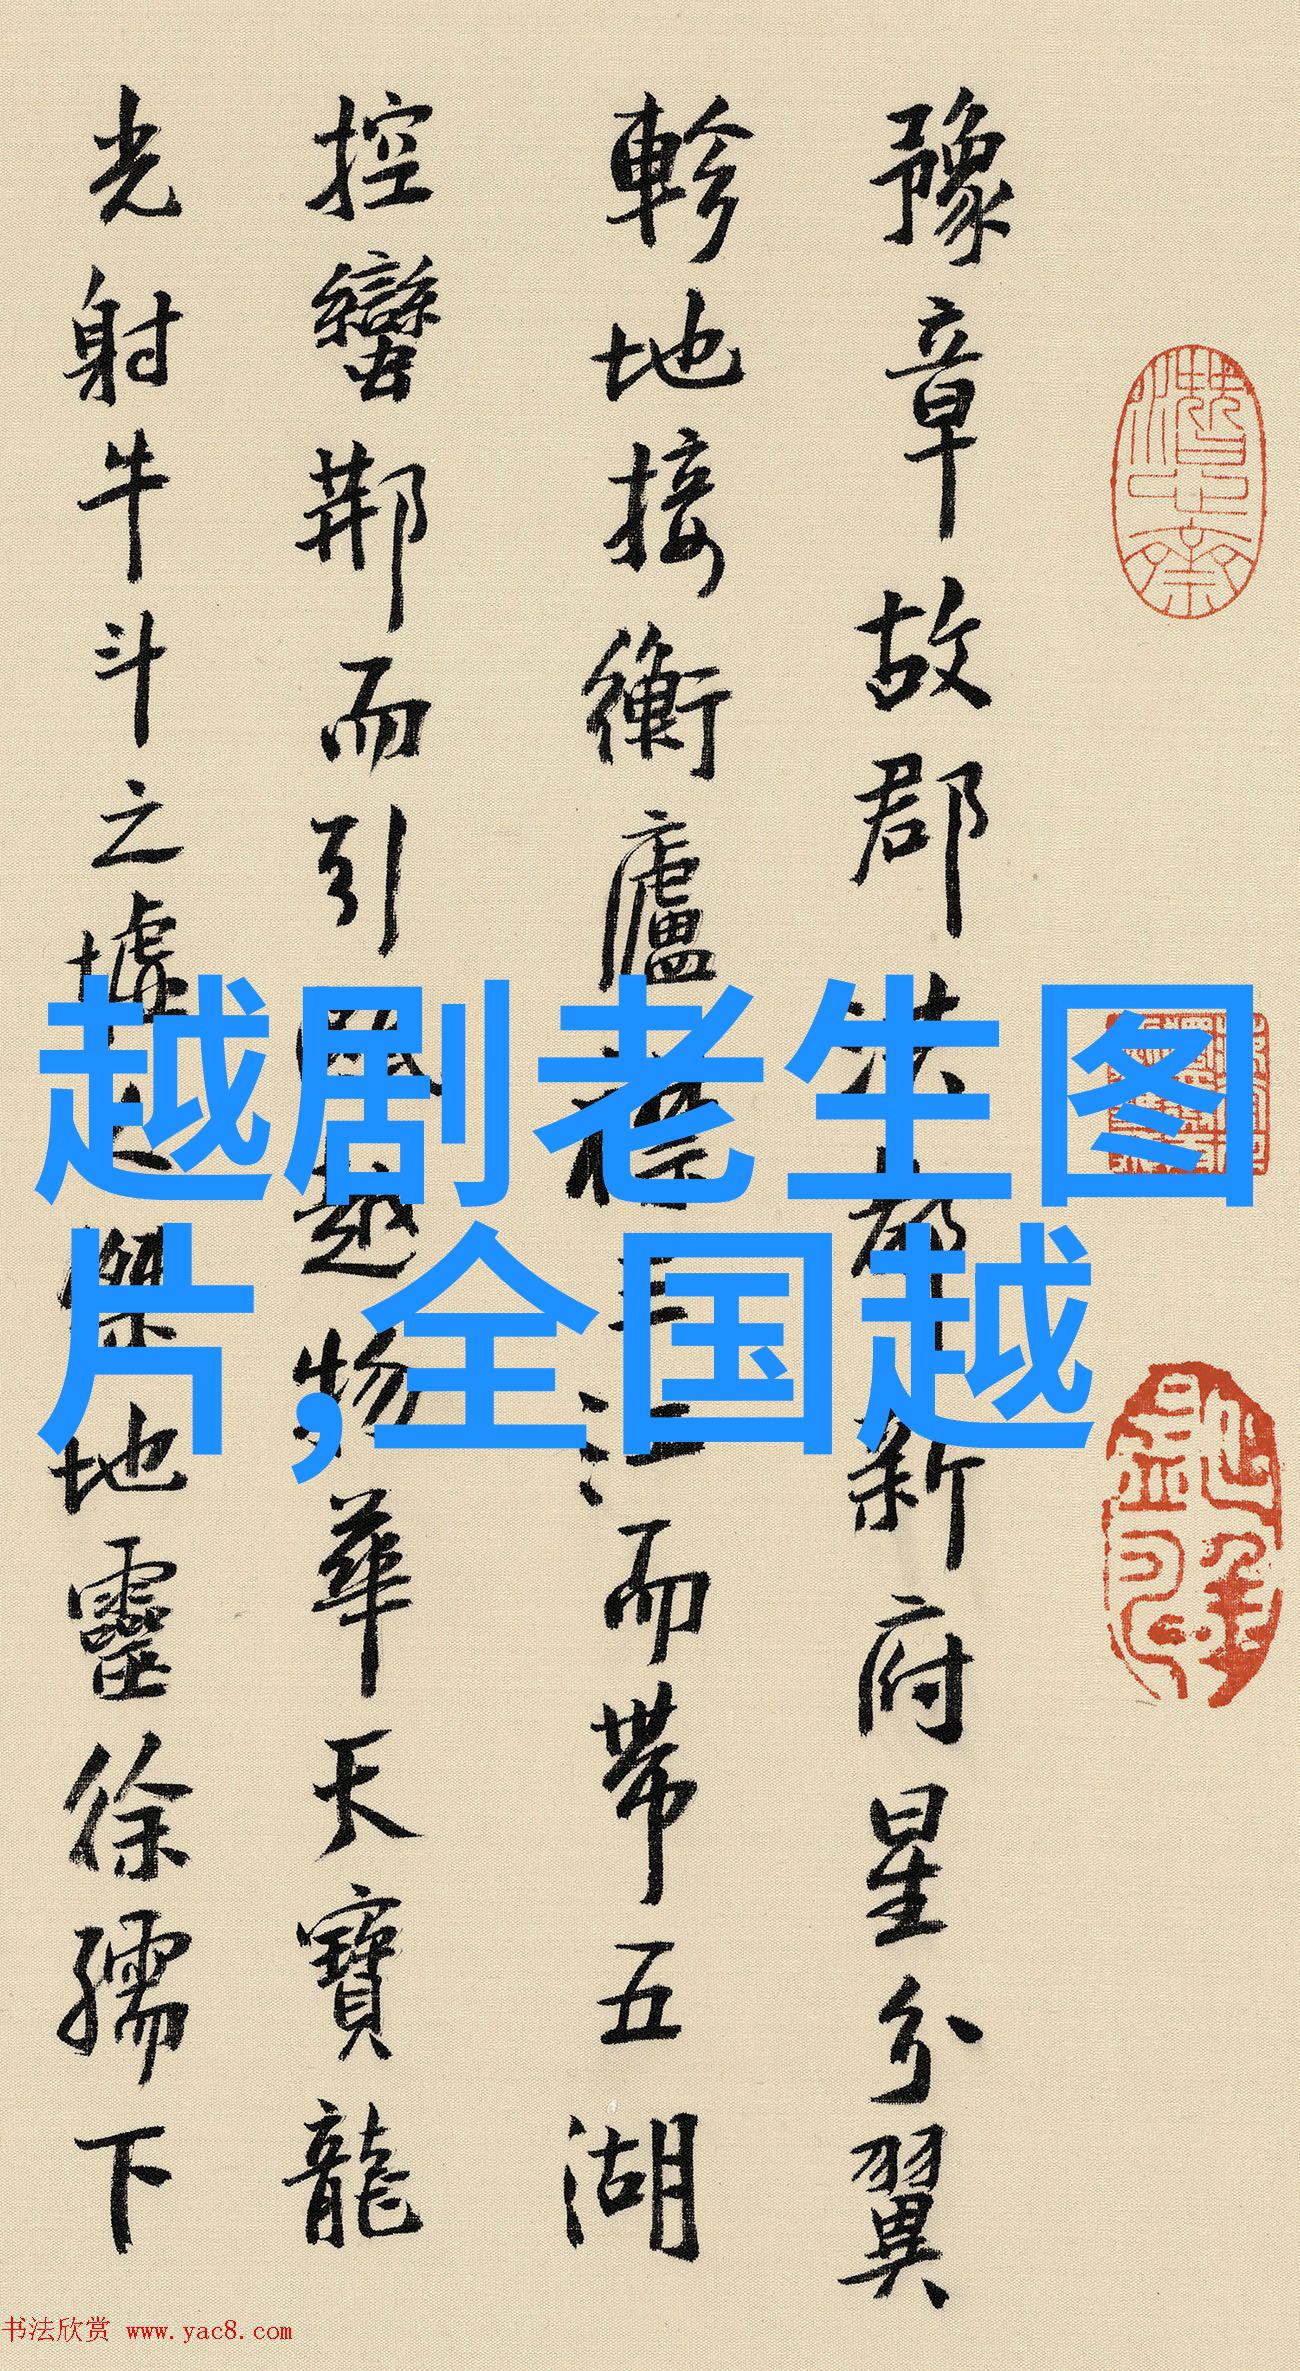 豫章故郡洪都新府星分翼
軫地接衡廬襟三江而帶五湖
控蠻荆而引甌越物華天寶龍
光射牛斗之墟人傑地靈徐孺下
越剧老生图
片,全国越
书法欣赏 www.yac8.com